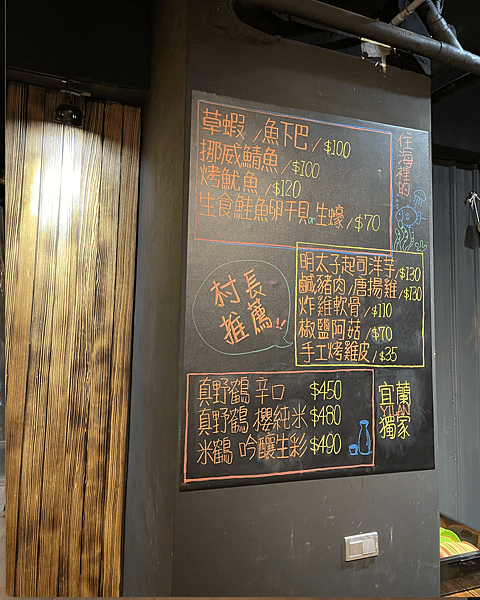 草蝦/魚下巴/$100
挪威鯖魚/$100
烤魷魚/$120
生食鮭魚卵干貝or生蠔/$70
住海裡的
村長
推薦!!
明太子起司洋芋/$130
鹹豬肉/唐揚雞/$130
炸雞軟骨/$110
椒鹽阿菇/$70
手工烤雞皮/$35
真野鶴 辛口 $450
真野鶴 櫻純米 $480
米鶴 吟釀生彩 $490
宜蘭
YILAN
獨家